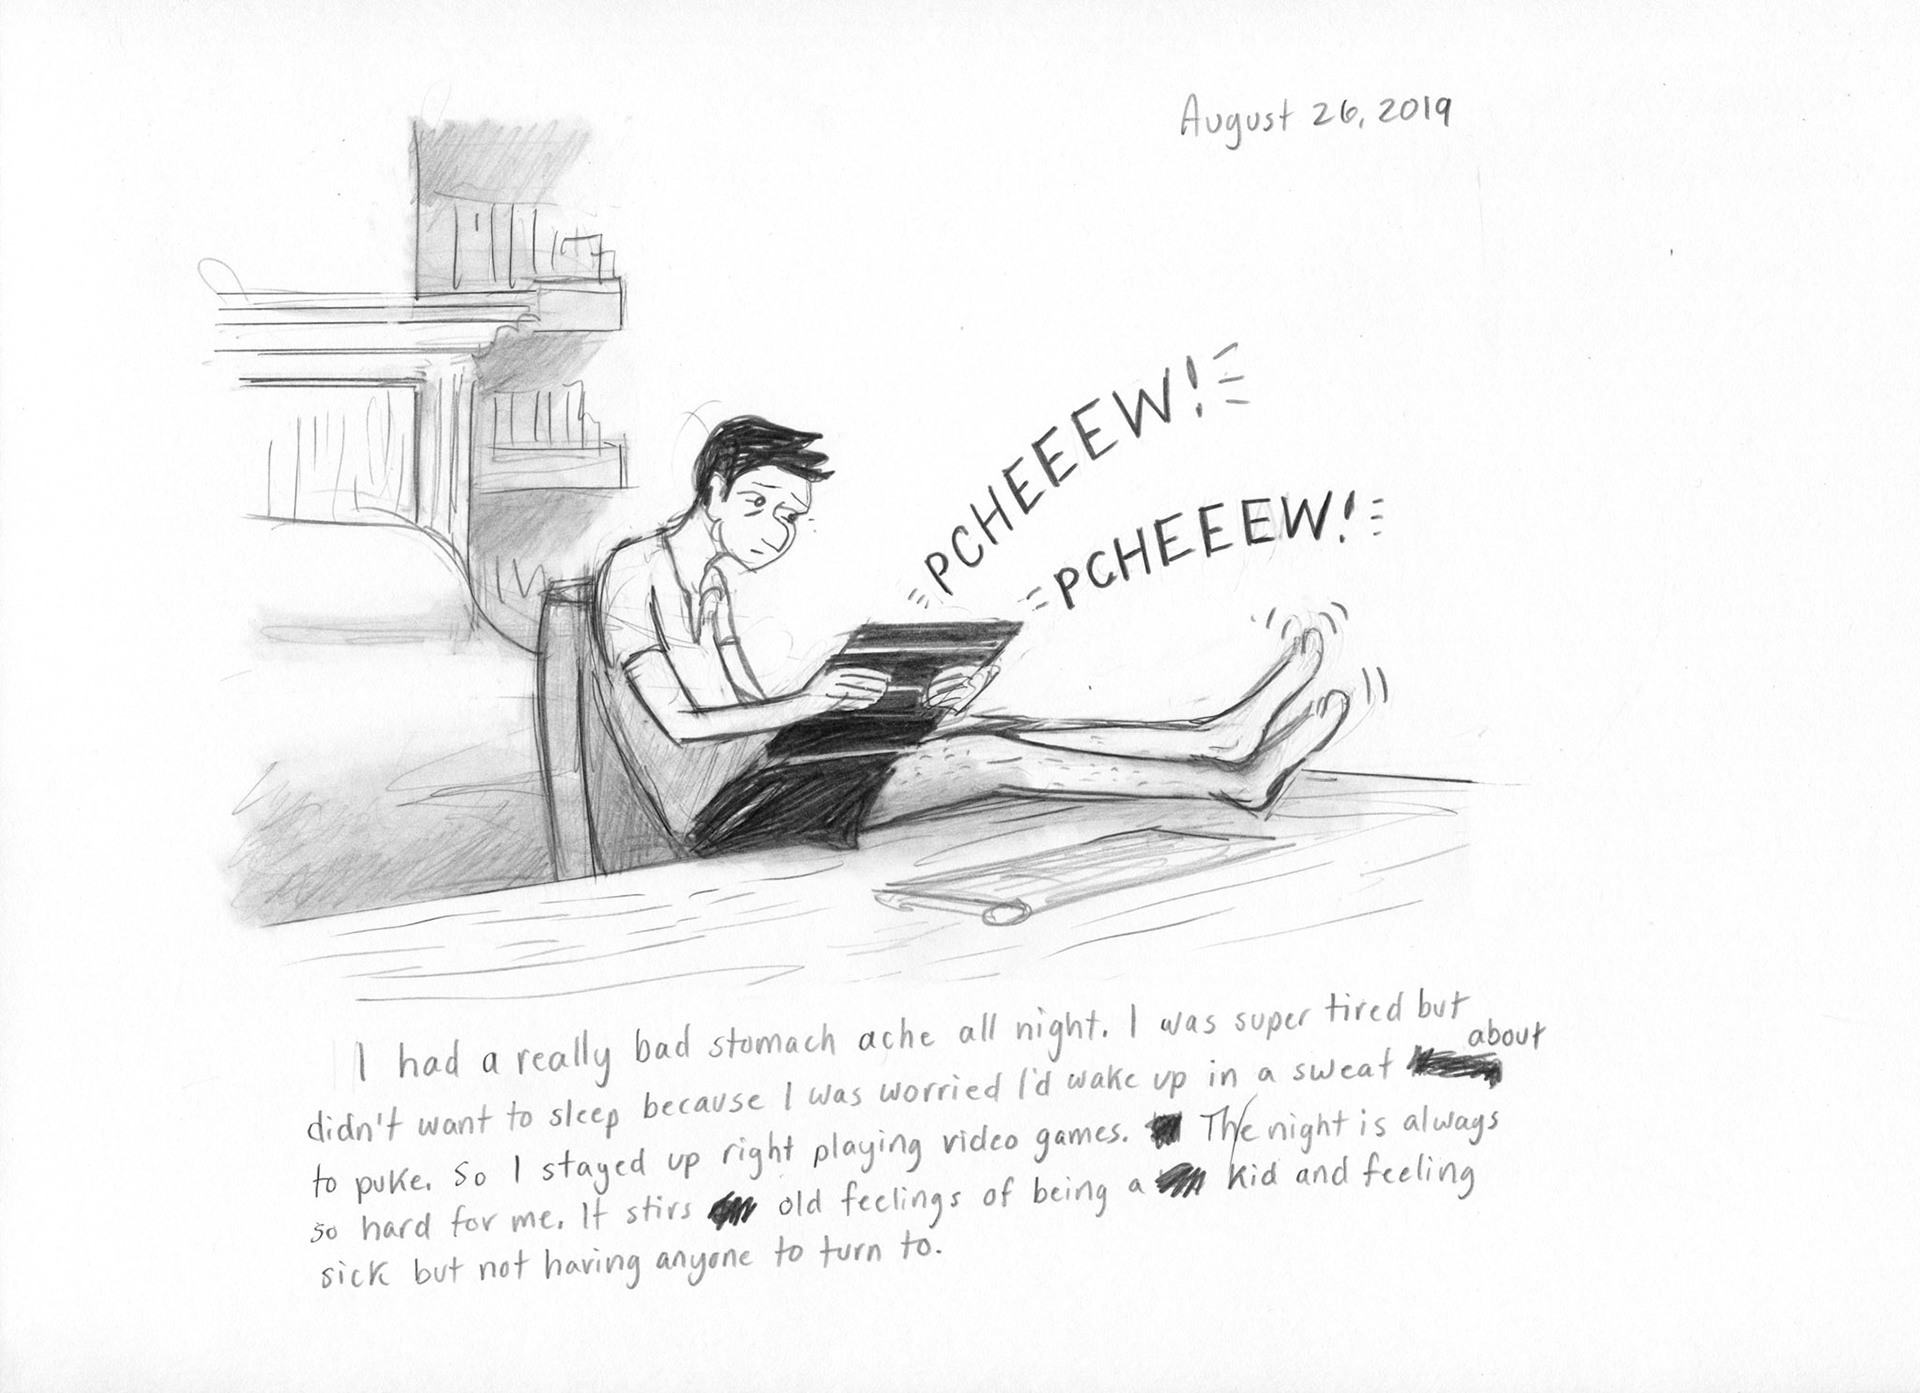 August 26, 2019
PCHEEEW!
PCHEEEW!
I had a really bad stomach ache all night. I was super tired but
didn't want to sleep because I was worried I'd wake up in a sweat about
to puke. So I stayed up right playing video games. The night is always
so hard for me. It stirs old feelings of being a kid and feeling
sick but not having anyone to turn to.